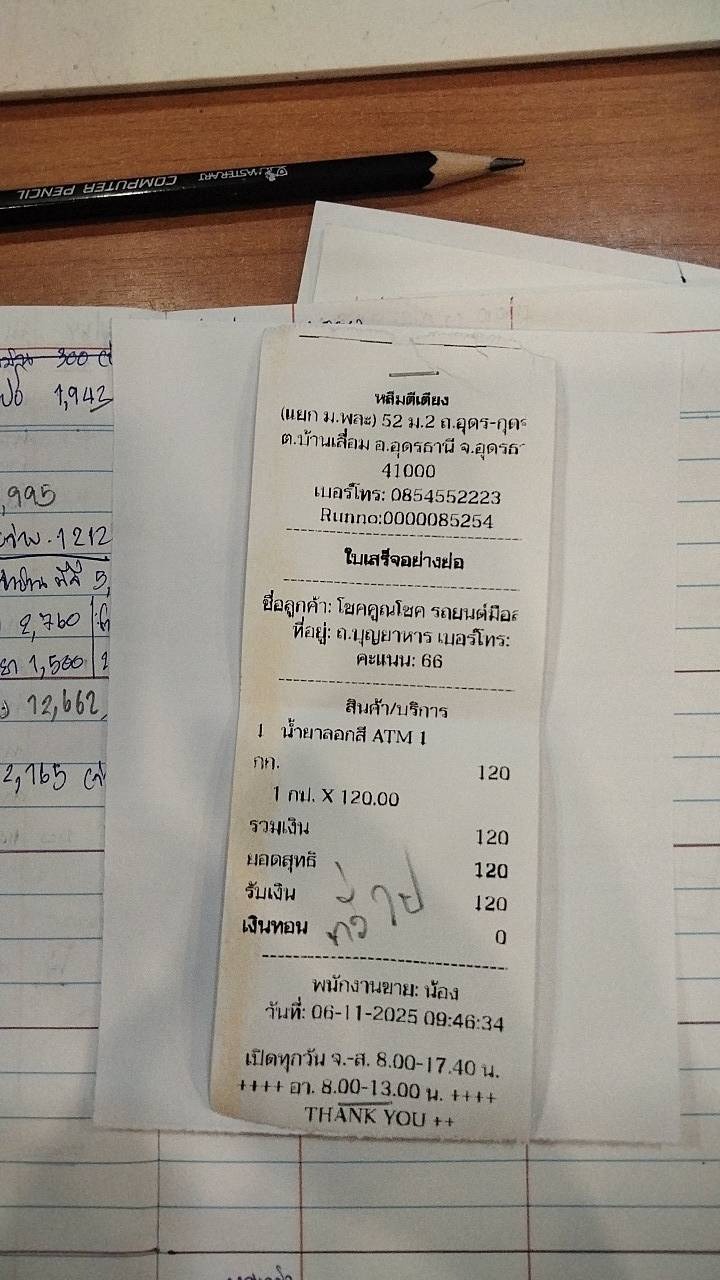 MASTERART COMPUTER PENCIL
300
1,942
,995
1212
5,
2,760
1,500
12,662
2,765
หลีมตีเตียง
(แยก ม.พละ) 52 ม.2 ถ.อุดร-กุดร
ต.บ้านเลื่อม อ.อุดรธานี จ.อุดรธ
41000
เบอร์โทร: 0854552223
Runno:0000085254
ใบเสร็จอย่างย่อ
ชื่อลูกค้า: โชคคูณโชค รถยนต์มือส
ที่อยู่: ถ.บุญยาหาร เบอร์โทร:
คะแนน: 66
สินค้า/บริการ
1 น้ำยาลอกสี ATM 1
กก. 120
1 กป. X 120.00
รวมเงิน 120
ยอดสุทธิ 120
รับเงิน 120
เงินทอน 0
ทั่วไป
พนักงานขาย: น้อง
วันที่: 06-11-2025 09:46:34
เปิดทุกวัน จ.-ส. 8.00-17.40 น.
++++ อา. 8.00-13.00 น. ++++
THANK YOU ++